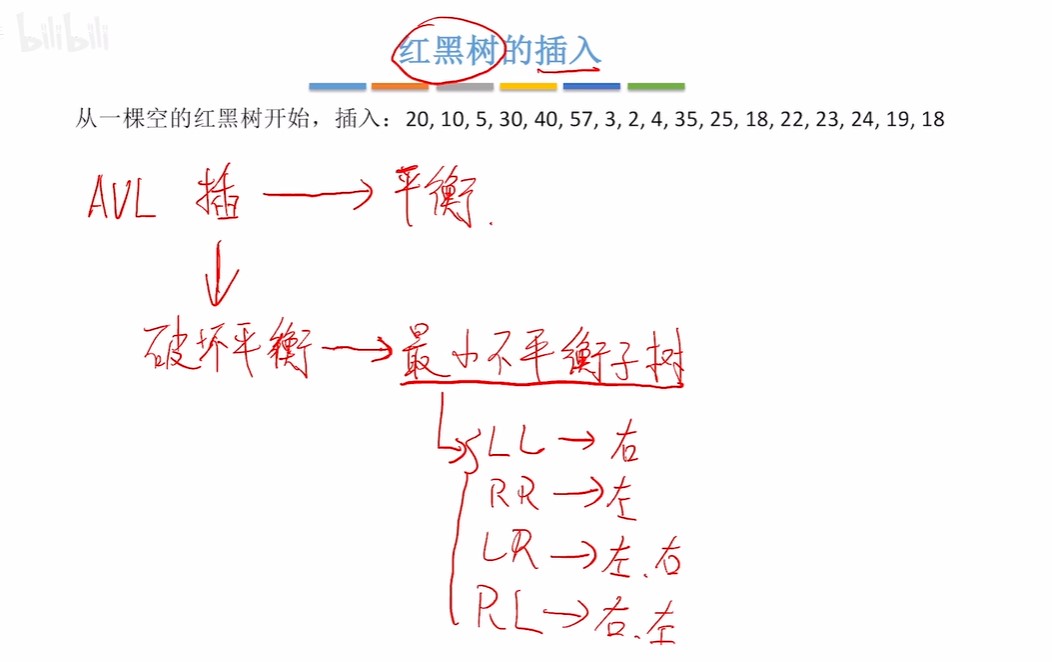 bilibili
红黑树的插入
从一棵空的红黑树开始，插入：20, 10, 5, 30, 40, 57, 3, 2, 4, 35, 25, 18, 22, 23, 24, 19, 18
AVL 插 → 平衡.
↓
破坏平衡 → 最小不平衡子树
LL → 右
RR → 左
LR → 左、右
RL → 右、左